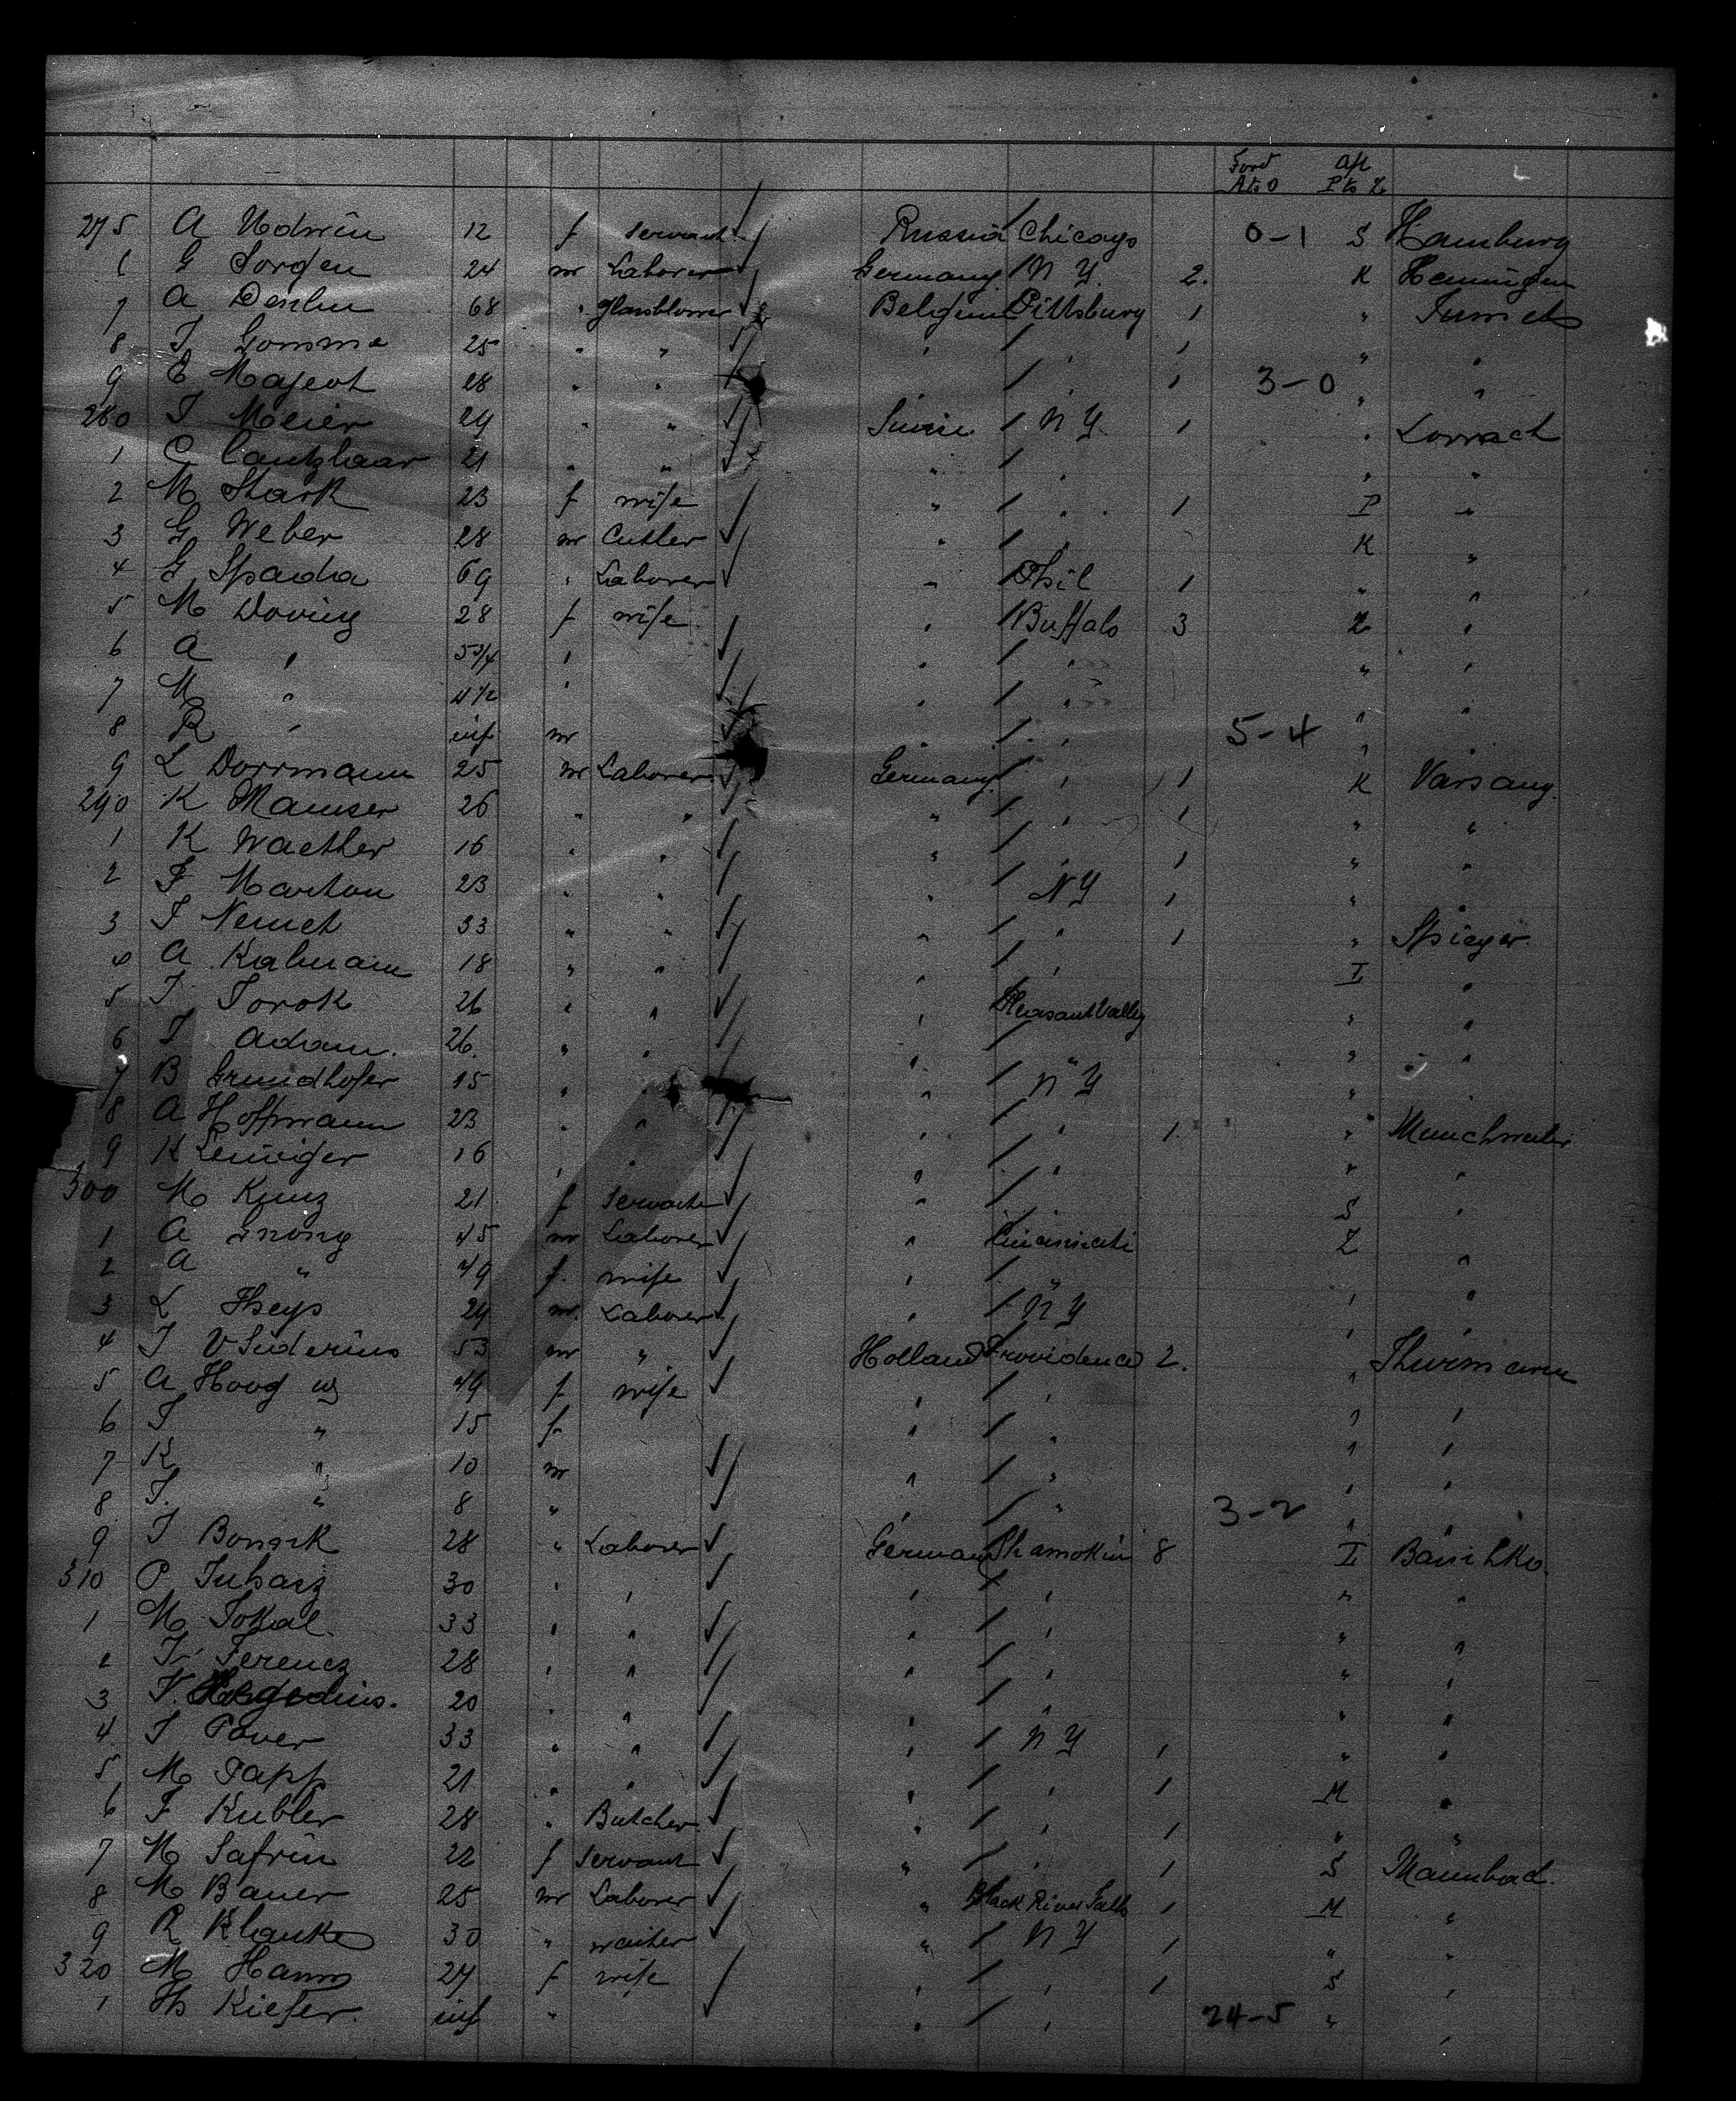 Ford Aft
A to O P to Z
275 A Nodwin 12 f servant Russia Chicago 0-1 S Hamburg
6 G Sorgen 24 m Laborer Germany N Y. 2. K Hemingen
7 A Deulin 68 " Glassblower Belgium Pittsburg 1 " Jumets
8 J Gomme 25 " " " " 1 " "
9 E Majeot 28 " " " 1 3-0 " "
280 J Meier 29 " " Suisse N Y. 1 " Lorrach
1 C Cantzlaar 21 " " " " " "
2 M Stark 23 f wife " " 1 P "
3 G Weber 28 m Cutler " K "
4 G Spadia 69 " Laborer " Phil 1 " "
5 M Doving 28 f wife " Buffalo 3 Z "
6 A " 5 3/4 " " " " "
7 M " 4 1/2 " " " " "
8 R " inf m " " 5-4 " "
9 L Dorrmann 25 m Laborer Germany " 1 K Varsang.
290 K Mamser 26 " " " " 1 " "
1 K Waether 16 " " " " 1 " "
2 F Marton 23 " " " N Y 1 " "
3 J Nemet 33 " " " " 1 " Spieger.
4 A Kalmann 18 " " " " I "
5 J Torok 26 " " " Pleasant Valley " "
6 J Adam. 26. " " " " " "
7 B Grundhofer 15 " " " N Y " "
8 A Hoffmann 23 " " " " 1. " Munchweiler
9 K Leiniger 16 " " " " " "
300 M Kunz 21 f servant " S "
1 A Snong 45 m Laborer " Cincinnati Z "
2 A " 49 f. wife " " " "
3 L Theys 24 m. Laborer " N Y " "
4 J V Suderius 53 m " Holland Providence 2. " Thurmann
5 A Hoog 49 f wife " " " "
6 J " 15 f " " " "
7 K " 10 m " " " "
8 J. " 8 " " " 3-2 " "
9 J Bonsik 28 " Laborer German Shamokin 8 I
310 P Juhasz 30 " " " " " "
1 M Tokal 33 " " " " " "
2 J Ferencz 28 " " " " " "
3 J. Hegedius. 20 " " " " " "
4 J Paver 33 " " " N Y 1 " "
5 M Papp 21 " " " " 1 M "
6 F Kubler 28 " Butcher " " 1 " "
7 M Safrin 22 f servant " " 1 S Maunbad.
8 M Bauer 25 m Laborer " Black River Falls 1 M "
9 R Klanke 30 " waiter " N Y 1 " "
320 M Hamm 27 f wife " " 1 S "
1 Th Kiefer. inf " " " 24-5 " "